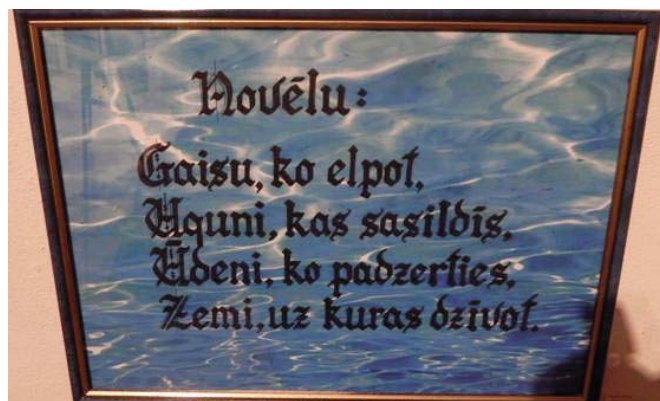 Novēlu:
Gaisu, ko elpot,
Uguni, kas sasildīs,
Ūdeni, ko padzerties,
Zemi, uz kuras dzīvot.